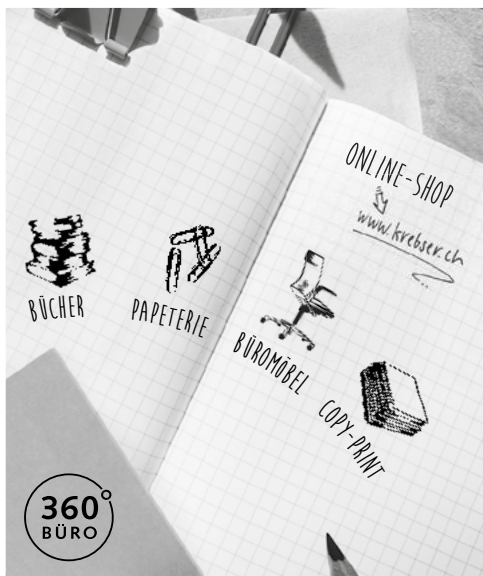 ONLINE-SHOP
www.krebser.ch
BÜCHER
PAPETERIE
BÜROMÖBEL
COPY-PRINT
360°
BÜRO